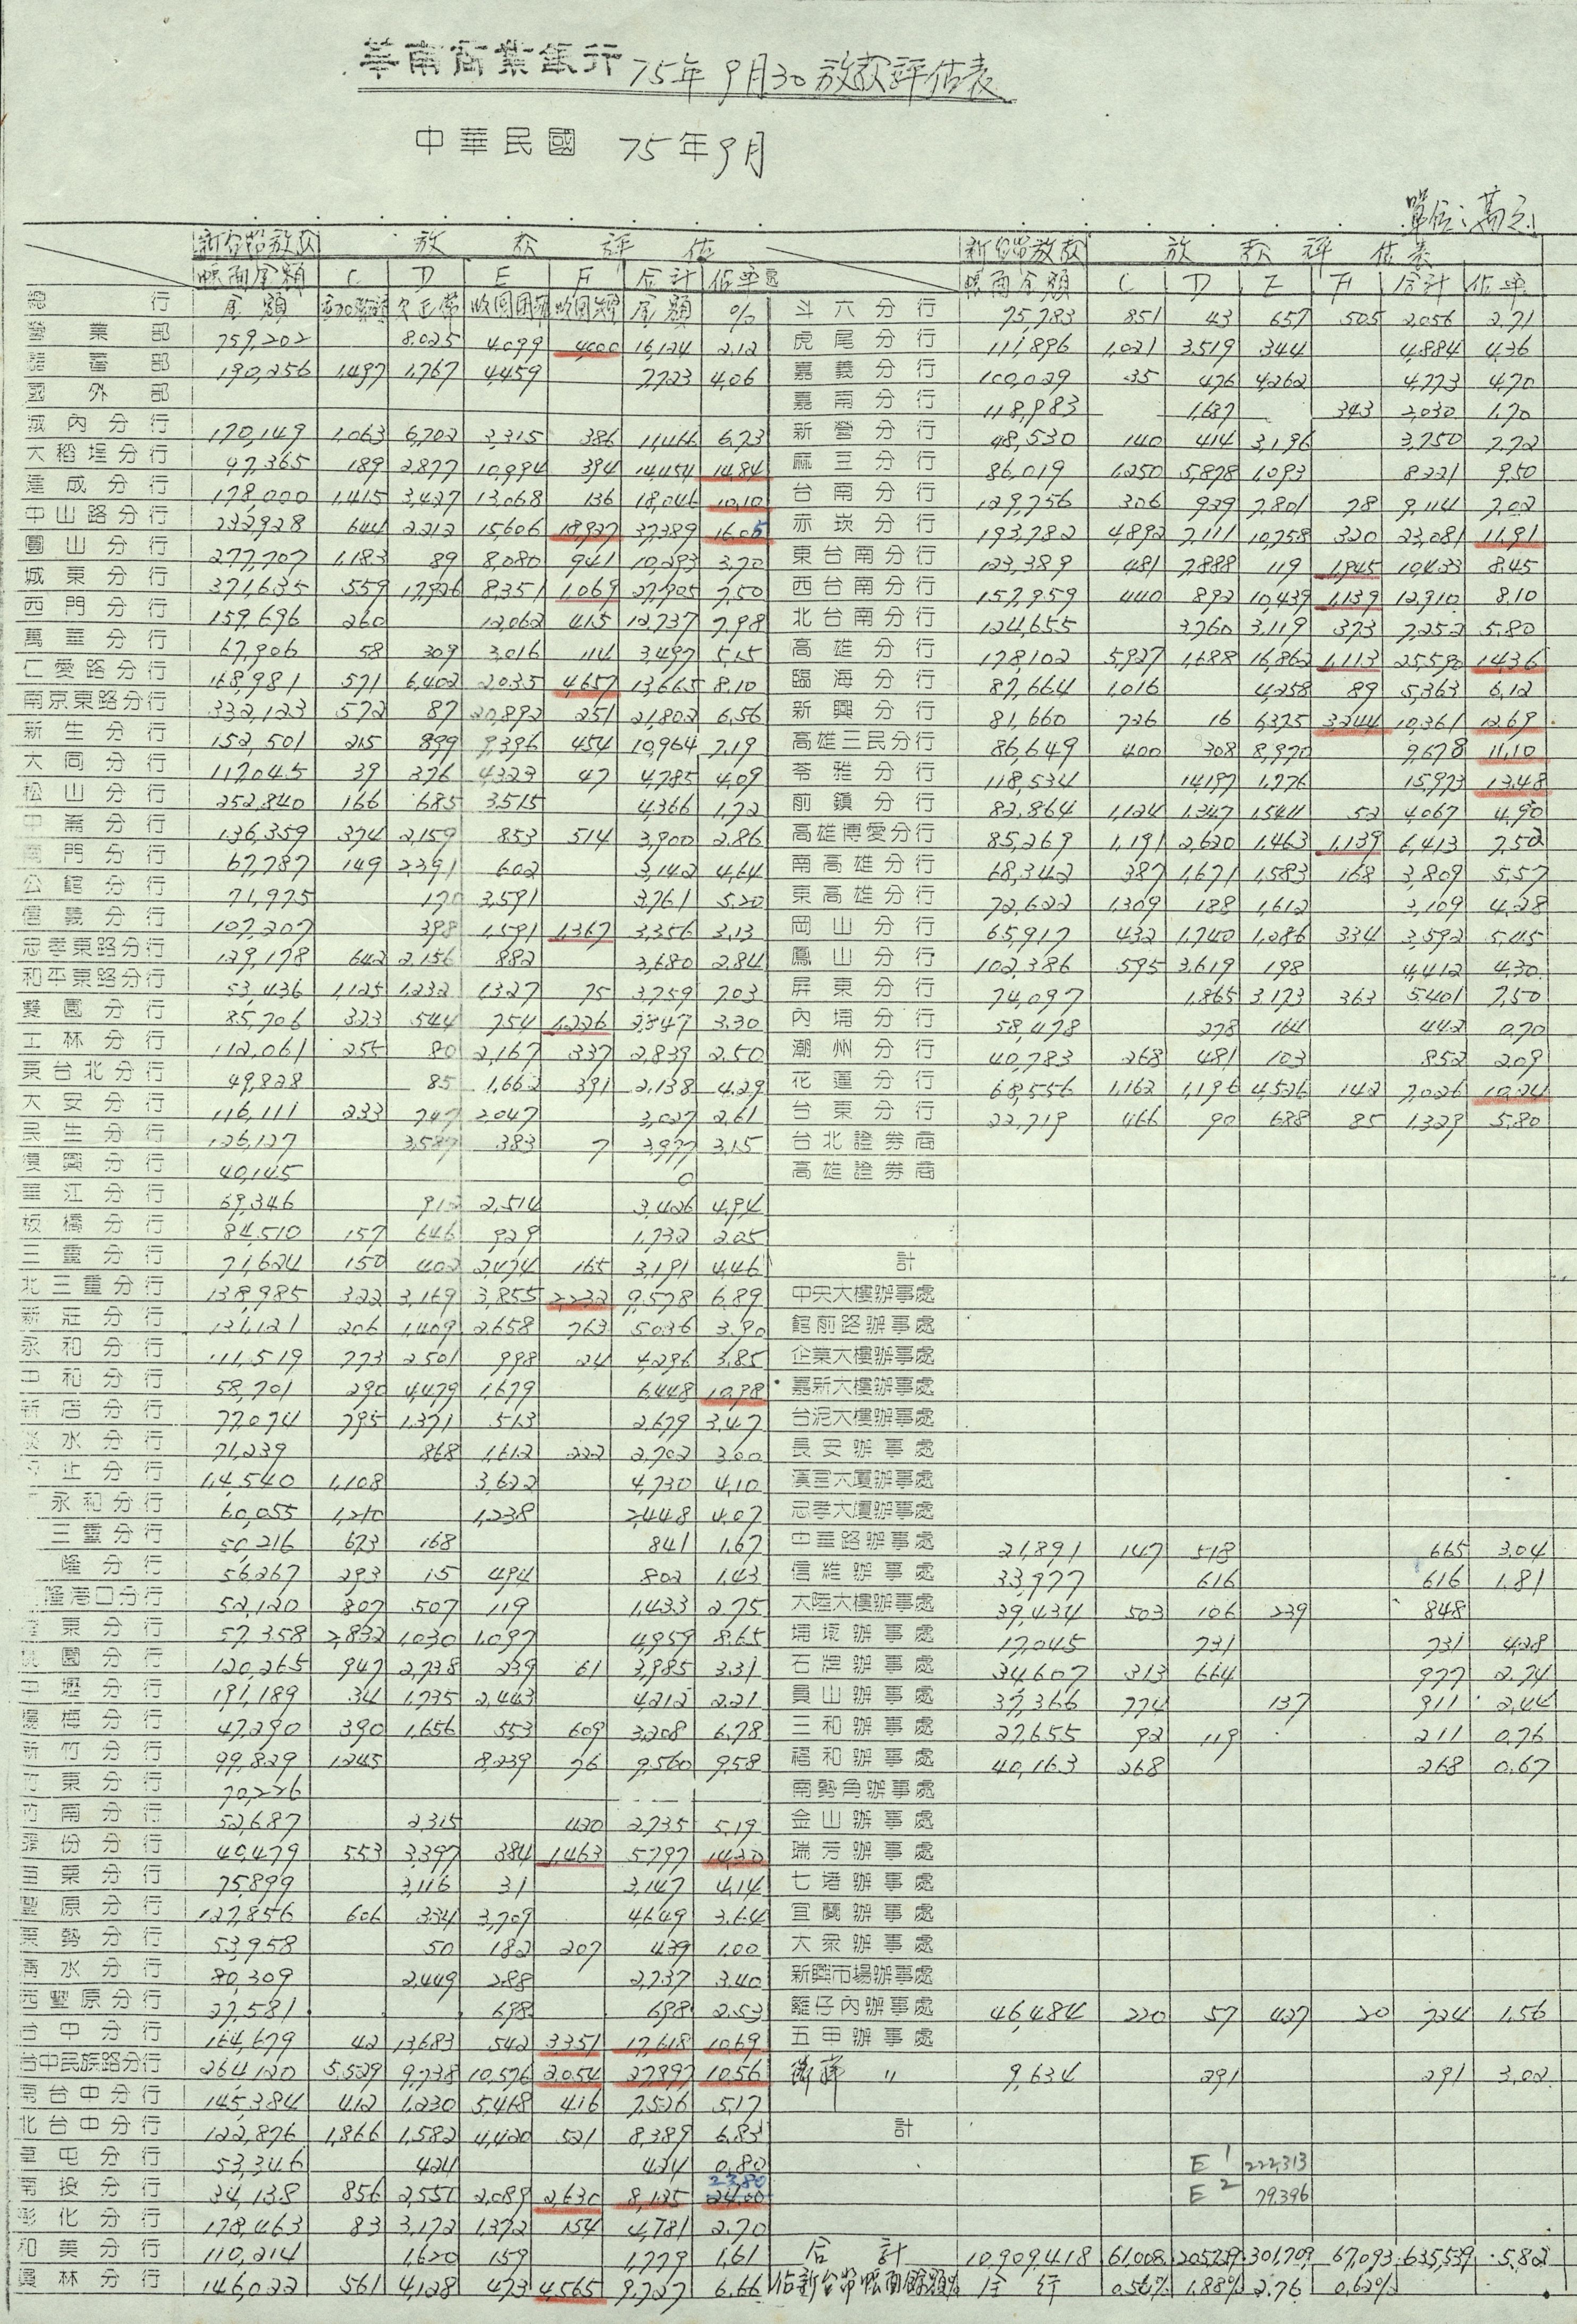 華南商業銀行 75年9月30放款評估表
中華民國 75年9月
單位:萬元
新台幣放款 放款評估 新台幣放款 放款評估表
帳面金額 C D E F 合計 佔率 帳面金額 C D E F 合計 佔率
總行 金額 欠正常 收回困難 金額 % 斗六分行 75,783 851 43 657 505 2,056 2.71
營業部 759,202 8,025 4,099 4,000 16,124 2.12 虎尾分行 111,896 1,021 3,519 344 4,884 4.36
儲蓄部 190,256 1,497 1,767 4,459 7,723 4.06 嘉義分行 100,029 35 476 4,262 4,773 4.70
國外部 嘉南分行 118,983 1,687 343 2,030 1.70
城內分行 170,149 1,063 6,702 3,315 386 11,466 6.73 新營分行 48,530 140 414 3,196 3,750 7.72
大稻埕分行 97,365 189 2,877 10,994 394 14,454 14.84 麻豆分行 86,019 1,250 5,878 1,093 8,221 9.50
建成分行 178,000 1,415 3,427 13,068 136 18,046 10.10 台南分行 129,756 306 929 7,801 78 9,114 7.02
中山路分行 232,928 644 2,212 15,606 18,927 37,389 16.05 赤崁分行 193,782 4,892 7,111 10,758 320 23,081 11.91
圓山分行 277,707 1,183 89 8,080 941 10,293 3.70 東台南分行 123,389 481 7,888 119 1,945 10,433 8.45
城東分行 371,635 559 17,926 8,351 1,069 27,905 7.50 西台南分行 157,959 440 892 10,439 1,139 12,910 8.10
西門分行 159,696 260 12,062 415 12,737 7.98 北台南分行 124,655 3,760 3,119 373 7,252 5.80
萬華分行 67,906 58 309 3,016 114 3,497 5.15 高雄分行 178,102 5,927 1,688 16,862 1,113 25,590 14.36
仁愛路分行 168,981 571 6,402 2,035 4,657 13,665 8.10 臨海分行 87,664 1,016 4,258 89 5,363 6.12
南京東路分行 332,123 572 87 20,892 251 21,802 6.56 新興分行 81,660 726 16 6,375 3,244 10,361 12.69
新生分行 152,501 215 899 9,396 454 10,964 7.19 高雄三民分行 86,649 400 308 8,970 9,678 11.10
大同分行 117,045 39 376 4,323 47 4,785 4.09 苓雅分行 118,534 14,197 1,776 15,973 13.48
松山分行 252,840 166 685 3,515 4,366 1.72 前鎮分行 82,864 1,124 1,347 1,544 52 4,067 4.90
中崙分行 136,359 374 2,159 853 514 3,900 2.86 高雄博愛分行 85,269 1,191 2,620 1,463 1,139 6,413 7.52
南門分行 67,787 149 2,391 602 3,142 4.64 南高雄分行 68,342 387 1,671 1,583 168 3,809 5.57
公館分行 71,975 170 3,591 3,761 5.20 東高雄分行 72,622 1,309 188 1,612 3,109 4.28
信義分行 107,207 398 1,591 1,367 3,356 3.13 岡山分行 65,917 432 1,740 1,086 334 3,592 5.45
忠孝東路分行 129,178 642 2,156 882 3,680 2.84 鳳山分行 102,386 595 3,619 198 4,412 4.30
和平東路分行 53,436 1,125 1,232 1,327 75 3,759 7.03 屏東分行 74,097 1,865 3,173 363 5,401 7.50
雙園分行 85,706 323 544 754 1,226 2,847 3.30 內埔分行 58,478 278 164 442 0.70
士林分行 112,061 255 80 2,167 337 2,839 2.50 潮州分行 40,783 268 481 103 852 2.09
東台北分行 49,828 85 1,662 391 2,138 4.29 花蓮分行 68,556 1,162 1,196 4,526 142 7,026 10.24
大安分行 116,111 233 747 2,047 3,027 2.61 台東分行 22,719 466 90 688 85 1,329 5.80
民生分行 126,127 3,587 383 7 3,977 3.15 台北證券商
復興分行 40,145 0 高雄證券商
華江分行 69,346 912 2,514 3,426 4.94
板橋分行 84,510 157 646 929 1,732 2.05
三重分行 71,624 150 402 2,474 165 3,191 4.46 計
北三重分行 138,985 322 3,169 3,855 2,232 9,578 6.89 中央大樓辦事處
新莊分行 131,121 206 1,409 2,658 763 5,036 3.90 館前路辦事處
永和分行 111,519 773 2,501 998 24 4,296 3.85 企業大樓辦事處
中和分行 58,701 290 4,479 1,679 6,448 10.98 嘉新大樓辦事處
新店分行 77,074 795 1,371 513 2,679 3.47 台泥大樓辦事處
淡水分行 71,239 868 1,612 222 2,702 3.00 長安辦事處
止分行 114,540 1,108 3,622 4,730 4.10 漢宮大廈辦事處
永和分行 60,055 1,210 1,238 2,448 4.07 忠孝大廈辦事處
三重分行 50,216 673 168 841 1.67 中華路辦事處 21,891 147 518 665 3.04
隆分行 56,267 293 15 494 802 1.43 信維辦事處 33,977 616 616 1.81
隆港口分行 52,120 807 507 119 1,433 2.75 大陸大樓辦事處 39,434 503 106 239 848
東分行 57,358 2,832 1,030 1,097 4,959 8.65 埔墘辦事處 17,045 731 731 4.28
桃園分行 120,265 947 2,738 239 61 3,985 3.31 石牌辦事處 34,607 313 664 977 2.74
中壢分行 191,189 34 1,735 2,443 4,212 2.21 員山辦事處 37,366 774 137 911 2.44
楊梅分行 47,290 390 1,656 553 609 3,208 6.78 三和辦事處 27,655 92 119 211 0.76
新竹分行 99,829 1,245 8,239 76 9,560 9.58 福和辦事處 40,163 268 268 0.67
竹東分行 70,226 南勢角辦事處
竹南分行 52,687 2,315 420 2,735 5.19 金山辦事處
頭份分行 40,479 553 3,397 384 1,463 5,797 14.30 瑞芳辦事處
苗栗分行 75,899 3,116 31 3,147 4.14 七堵辦事處
豐原分行 127,856 606 334 3,709 4,649 3.64 宜蘭辦事處
東勢分行 53,958 50 182 207 439 1.00 大眾辦事處
清水分行 80,309 2,449 288 2,737 3.40 新興市場辦事處
西豐原分行 27,581 698 698 2.53 籬仔內辦事處 46,484 220 57 427 20 724 1.56
台中分行 164,679 42 13,683 542 3,351 17,618 10.69 五甲辦事處
台中民族路分行 264,120 5,529 9,738 10,576 2,054 27,897 10.56 〃 9,634 291 291 3.02
南台中分行 145,384 412 1,230 5,468 416 7,526 5.17
北台中分行 122,876 1,866 1,582 4,420 521 8,389 6.83 計
草屯分行 53,346 424 424 0.80 E1 222,313
南投分行 34,138 856 2,550 2,089 2,630 8,125 23.80 24.00 E2 79,396
彰化分行 178,463 83 3,172 1,372 154 4,781 2.70
和美分行 110,214 1,620 159 1,779 1.61 合計 10,909,418 61,008 205,729 301,709 67,093 635,539 5.82
員林分行 146,022 561 4,128 473 4,565 9,727 6.66 佔新台幣帳面餘額% 全行 0.56% 1.88% 2.76 0.62%